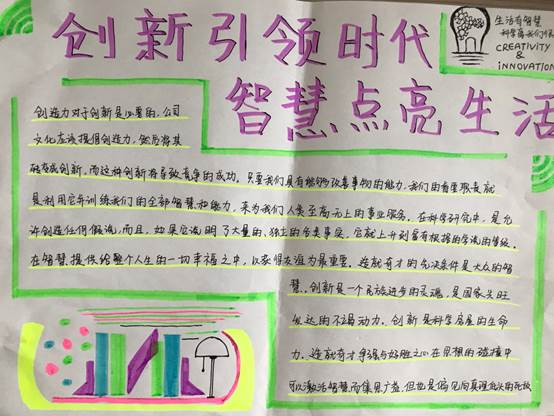 创新引领时代
智慧点亮生活
生活有智慧
CREATIVITY
&
INNOVATION
创造力对于创新是必要的,公司
文化应该提倡创造力,然后将其
转变成创新,而这种创新将导致竞争的成功。只要我们具有能够改善事物的能力,我们的首要职责就
是利用它并训练我们的全部智慧和能力,来为我们人类至高无上的事业服务。在科学研究中,是允
许创造任何假说,而且,如果它说明了大量的、独立的各类事实,它就上升到富有根据的学说的等级。
在智慧提供给整个人生的一切幸福之中,以获得友谊为最重要。造就奇才的先决条件是大众的智
慧。创新是一个民族进步的灵魂,是国家兴旺
发达的不竭动力。创新是科学房屋的生命
力。造就奇才
争强与好胜之心在思想的碰撞中
可以激活智慧而集思广益,但也是偏见